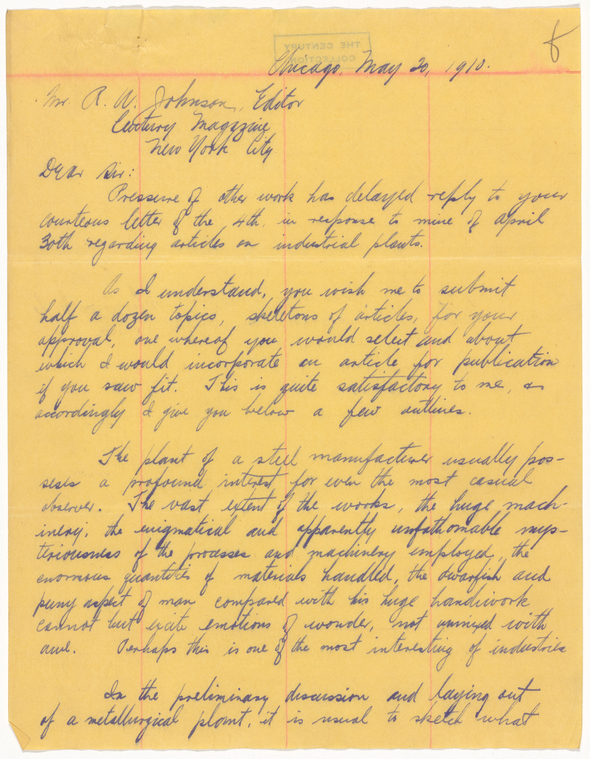 THE CENTURY
COLLECTION
8
Chicago, May 20, 1910.
Mr R. W. Johnson, Editor
Century Magazine
New York City
Dear Sir:
Pressure of other work has delayed reply to your
courteous letter of the 4th. in response to mine of April
30th regarding articles on industrial plants.
As I understand, you wish me to submit
half a dozen topics, skeletons of articles, for your
approval, one whereof you would select and about
which I would incorporate an article for publication
if you saw fit. This is quite satisfactory to me, &
accordingly I give you below a few outlines.
The plant of a steel manufacturer usually pos-
sesses a profound interest for even the most casual
observer. The vast extent of the works, the huge mach-
inery, the enigmatical and apparently unfathomable mys-
teriousness of the processes and machinery employed, the
enormous quantities of materials handled, the dwarfish and
puny aspect of man compared with his huge handiwork
cannot but excite emotions of wonder, not unmixed with
awe. Perhaps this is one of the most interesting of industries
In the preliminary discussion and laying out
of a metallurgical plant, it is usual to sketch what